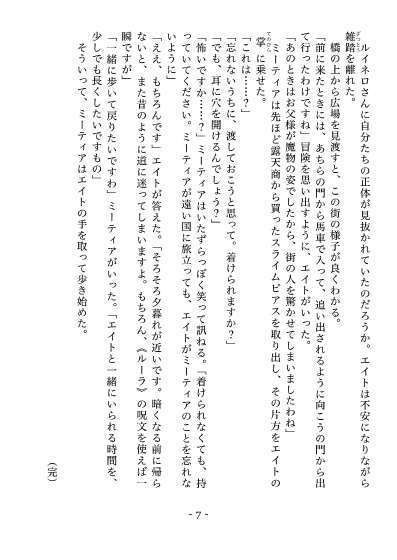 ルイネロさんに自分たちの正体が見抜かれていたのだろうか。エイトは不安になりながら
雑踏を離れた。
ざっとう
橋の上から広場を見渡すと、この街の様子が良くわかる。
「前に来たときには、あちらの門から馬車で入って、追い出されるように向こうの門から出
て行ったわけですね」冒険を思い出すように、エイトがいった。
「あのときはお父様が魔物の姿でしたから、街の人を驚かせてしまいましたわね」
ミーティアは先ほど露天商から買ったスライムピアスを取り出し、その片方をエイトの
掌に乗せた。
てのひら
「これは……？」
「忘れないうちに、渡しておこうと思って。着けられますか？」
「でも、耳に穴を開けるんでしょう？」
「怖いですか……？」ミーティアはいたずらっぽく笑って訊ねる。「着けられなくても、持
っていてください。ミーティアが遠い国に旅立っても、エイトがミーティアのことを忘れな
いように」
「ええ、もちろんです」エイトが答えた。「そろそろ夕暮れが近いです。暗くなる前に帰ら
ないと、また昔のように道に迷ってしまいますよ。もちろん、《ルーラ》の呪文を使えば一
瞬ですが」
「一緒に歩いて戻りたいですわ」ミーティアがいった。「エイトと一緒にいられる時間を、
少しでも長くしたいですもの」
そういって、ミーティアはエイトの手を取って歩き始めた。
（完）
- 7 -